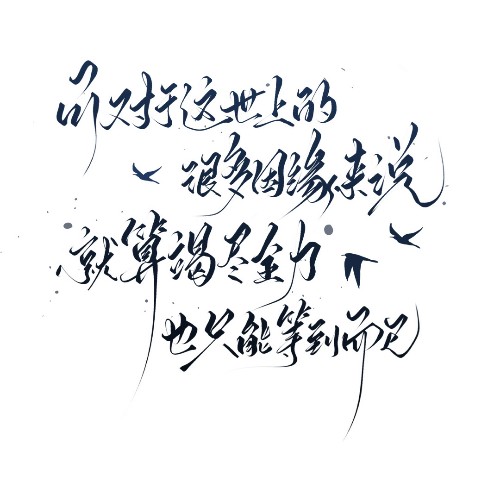 而对于这世上的
很多因缘来说
就算竭尽全力
也只能等到而已